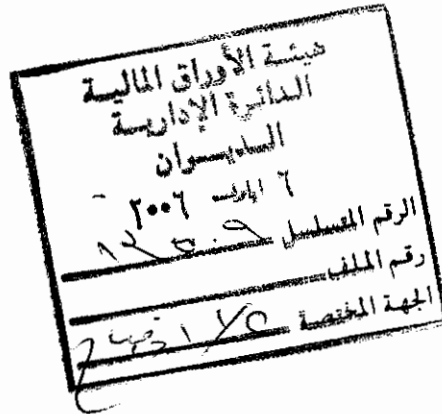 هيئة الأوراق المالية
الدائرة الإدارية
الديوان
٦ ٢٠٠٦
الرقم المتسلسل
رقم الملف
الجهة المختصة